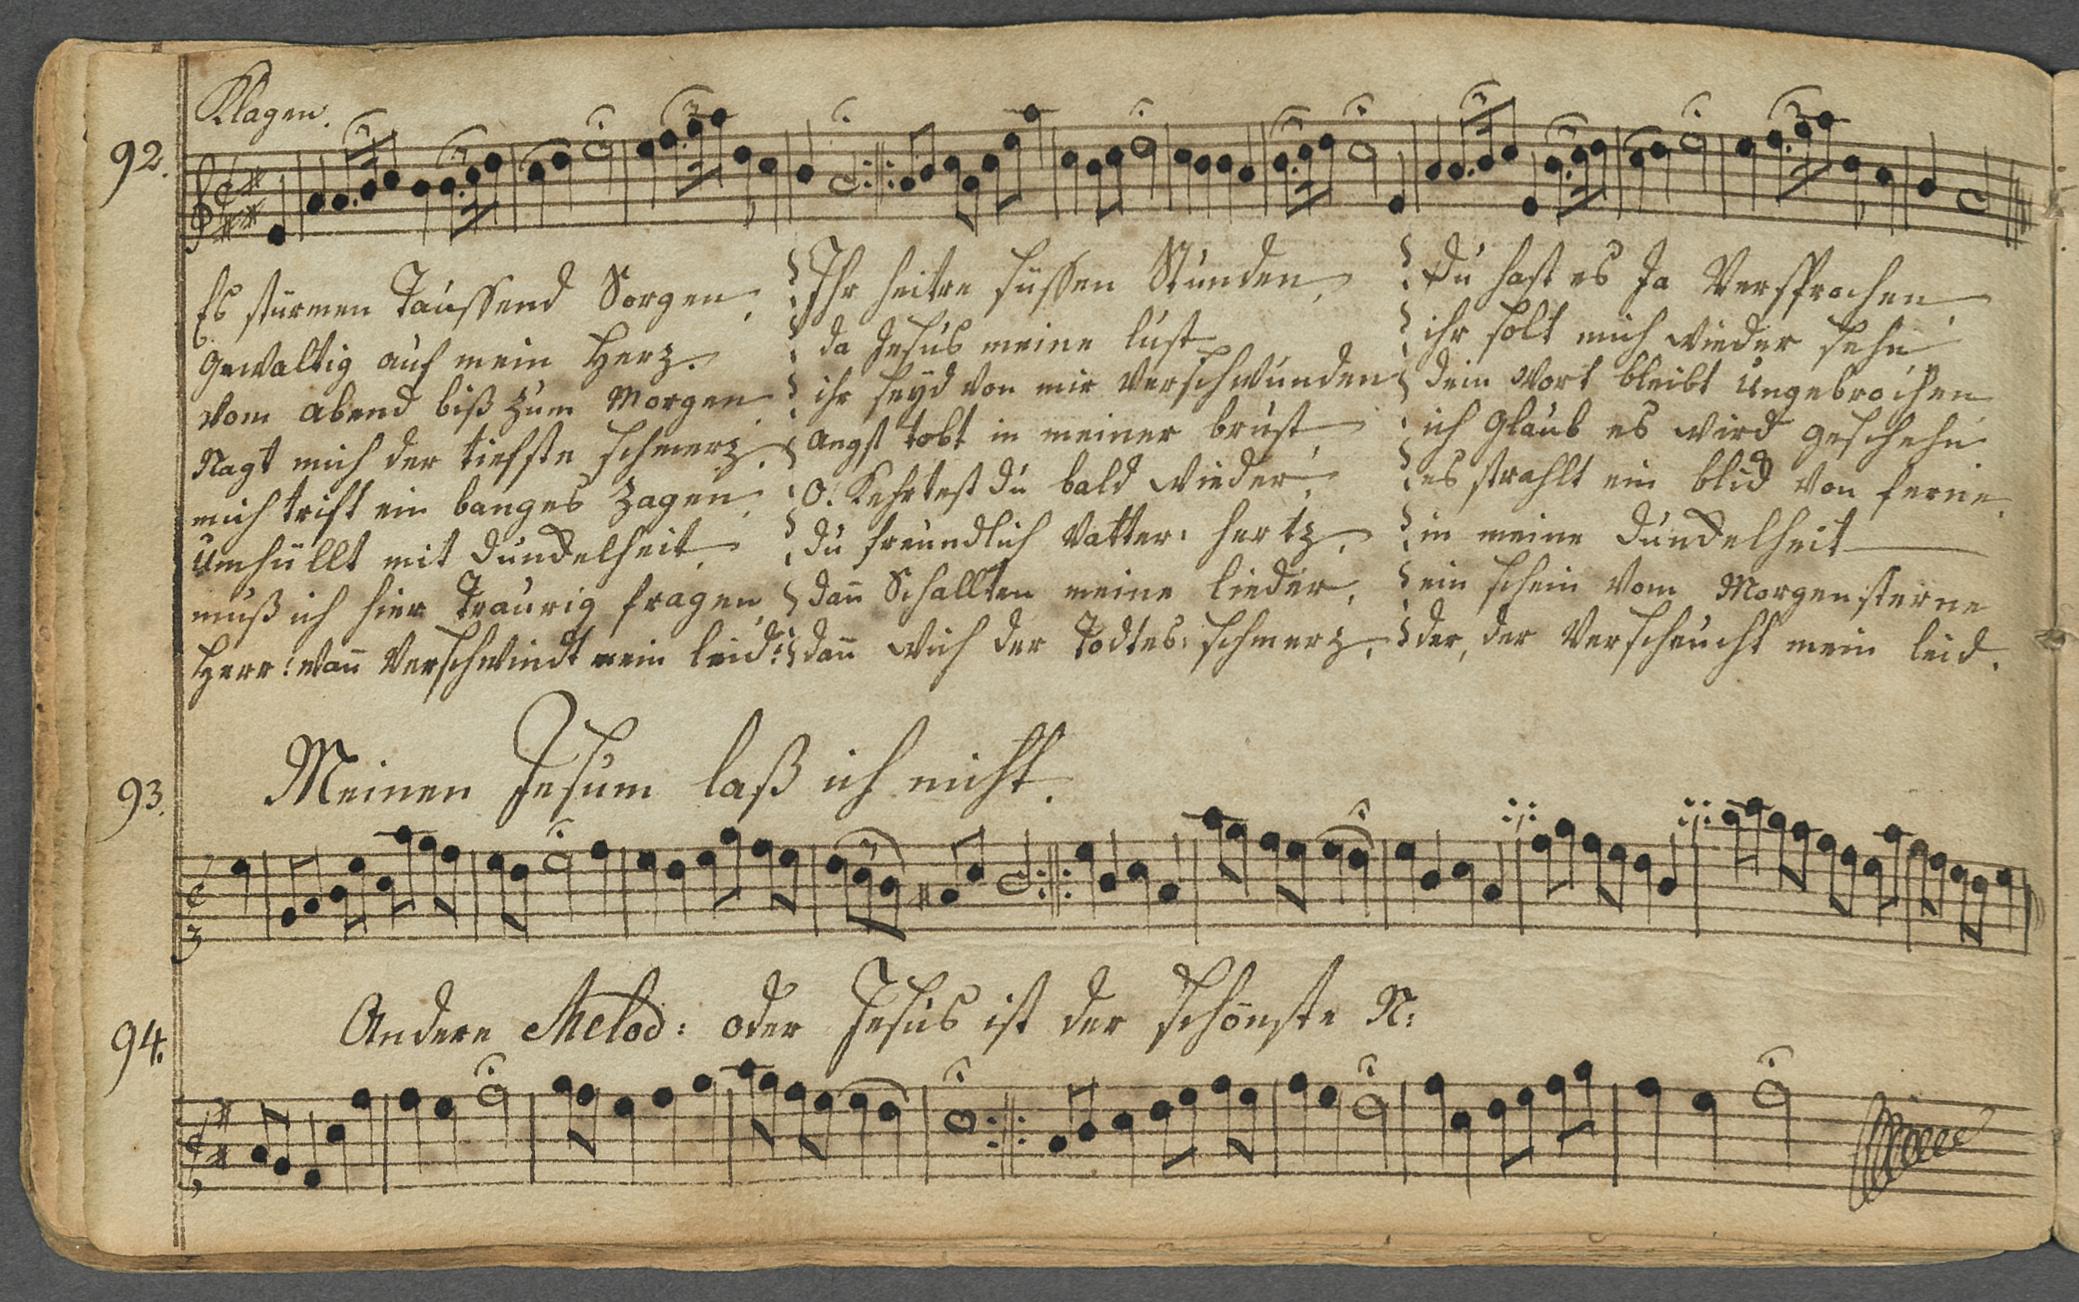 Klagen.
92.
Es stürmen Taussend Sorgen,
Gewaltig auf mein Herz.
Vom abend biß zum Morgen
Nagt mich der tiefste schmerz.
mich trift ein banges Zagen,
Umhüllt mit dunckelheit,
muß ich hier Traurig fragen,
Herr! wañ Verschwindt mein leid?
Ihr heitre süssen Stunden,
da Jesus meine lust
ihr seyd von mir Verschwunden
angst tobt in meiner brust,
O! Kehrtest du bald wieder,
du freundlich Vatter: hertz,
dañ Schallten meine lieder,
dañ wich der Todtes: schmerz,
Du hast es Ja Versprochen
ihr solt mich wieder sehn
dein Wort bleibt Ungebrochen
ich Glaub es wird geschehn
es strahlt ein blick von ferne,
in meine dunckelheit
ein schein vom Morgensterne
der, der Verscheucht mein leid.
93.
Meinen Jesum laß ich nicht.
94.
Andere Melod: oder Jesus ist der schönste N: